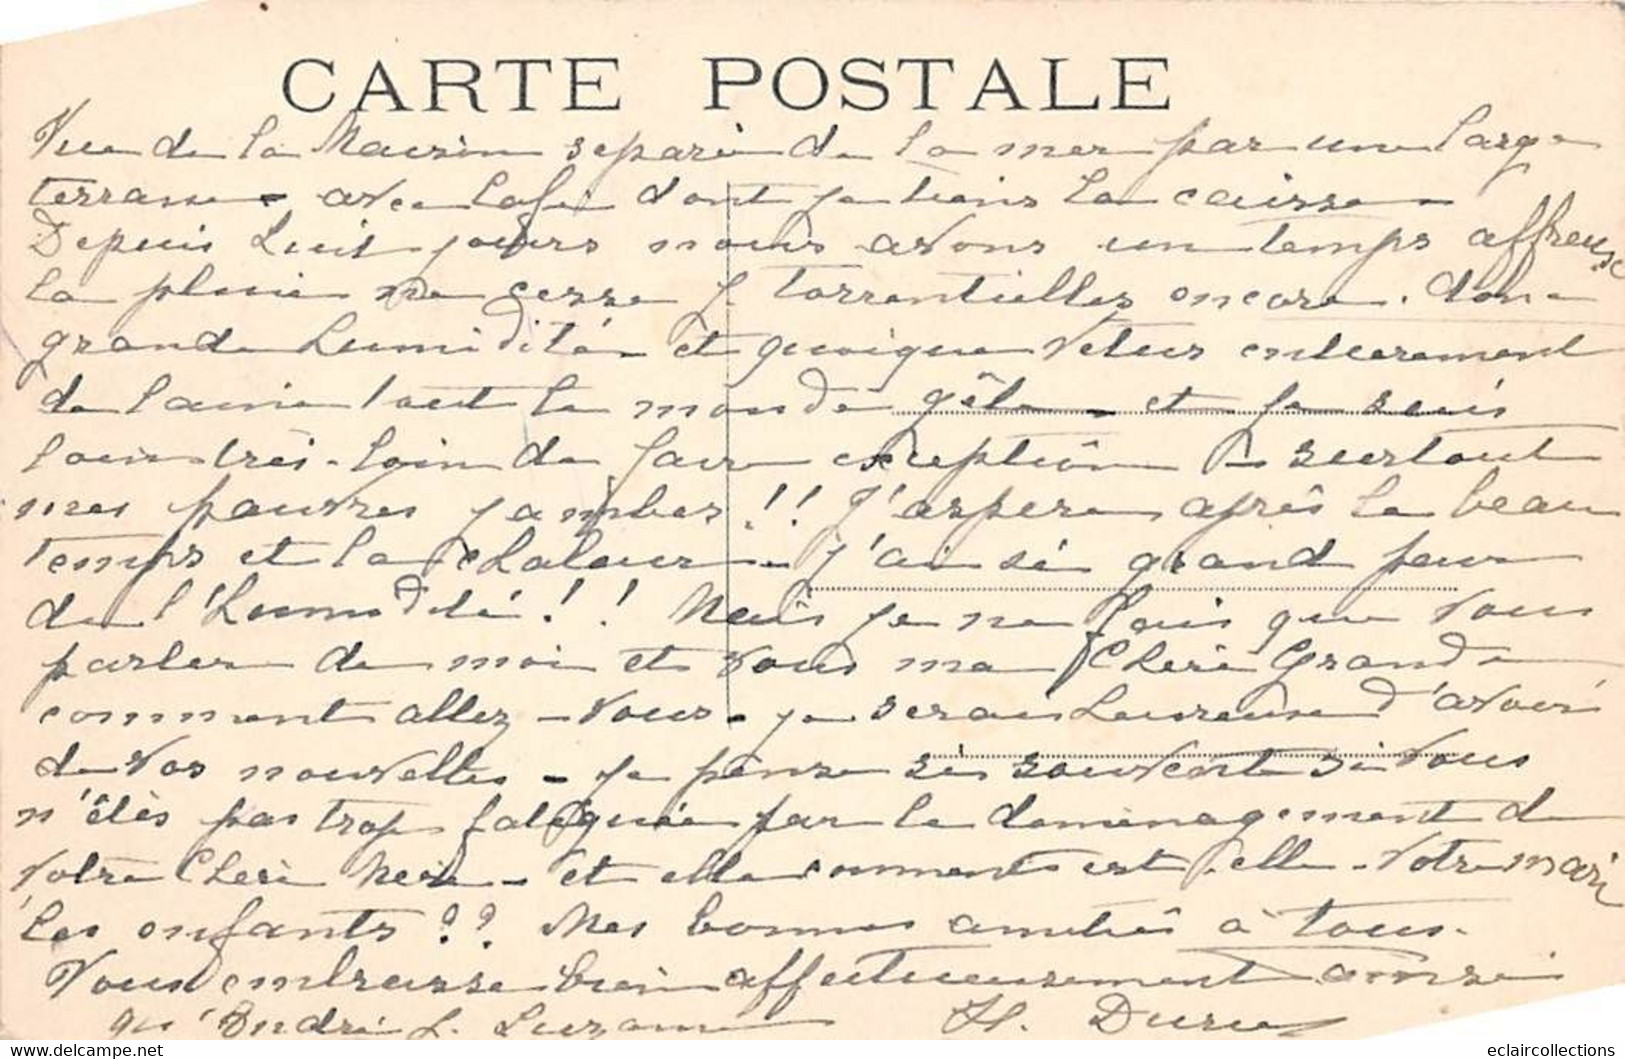 CARTE POSTALE
Vue de la Maison separée de la mer par une large
terrasse - avec Café dont je tiens la caisse -
Depuis huit jours nous avons un temps affreuse
la pluie ne cesse torrentielles encore. donc
grande humidité - et quoique vetus entierement
de laine tout le monde gêle - et je suis
loin très-loin de faire exception surtout
mes pauvres jambes!! J'espere après le beau
temps et la chaleur - j'ai si grand peur
de l'humidité!! Mais je ne fais que vous
parler de moi et vous ma Chere Grande
comment allez-vous - je serais heureuse d'avoir
de vos nouvelles - je pense si souvent si vous
n'êtes pas trop fatiguée par le demenagement de
votre Chere Mere - et elle comment est elle - votre mari
les enfants?? Mes bonnes amitiés à tous.
Vous embrasse bien affectueusement ainsi
qu'André Suzanne H.
eclaircollections
www.delcampe.net